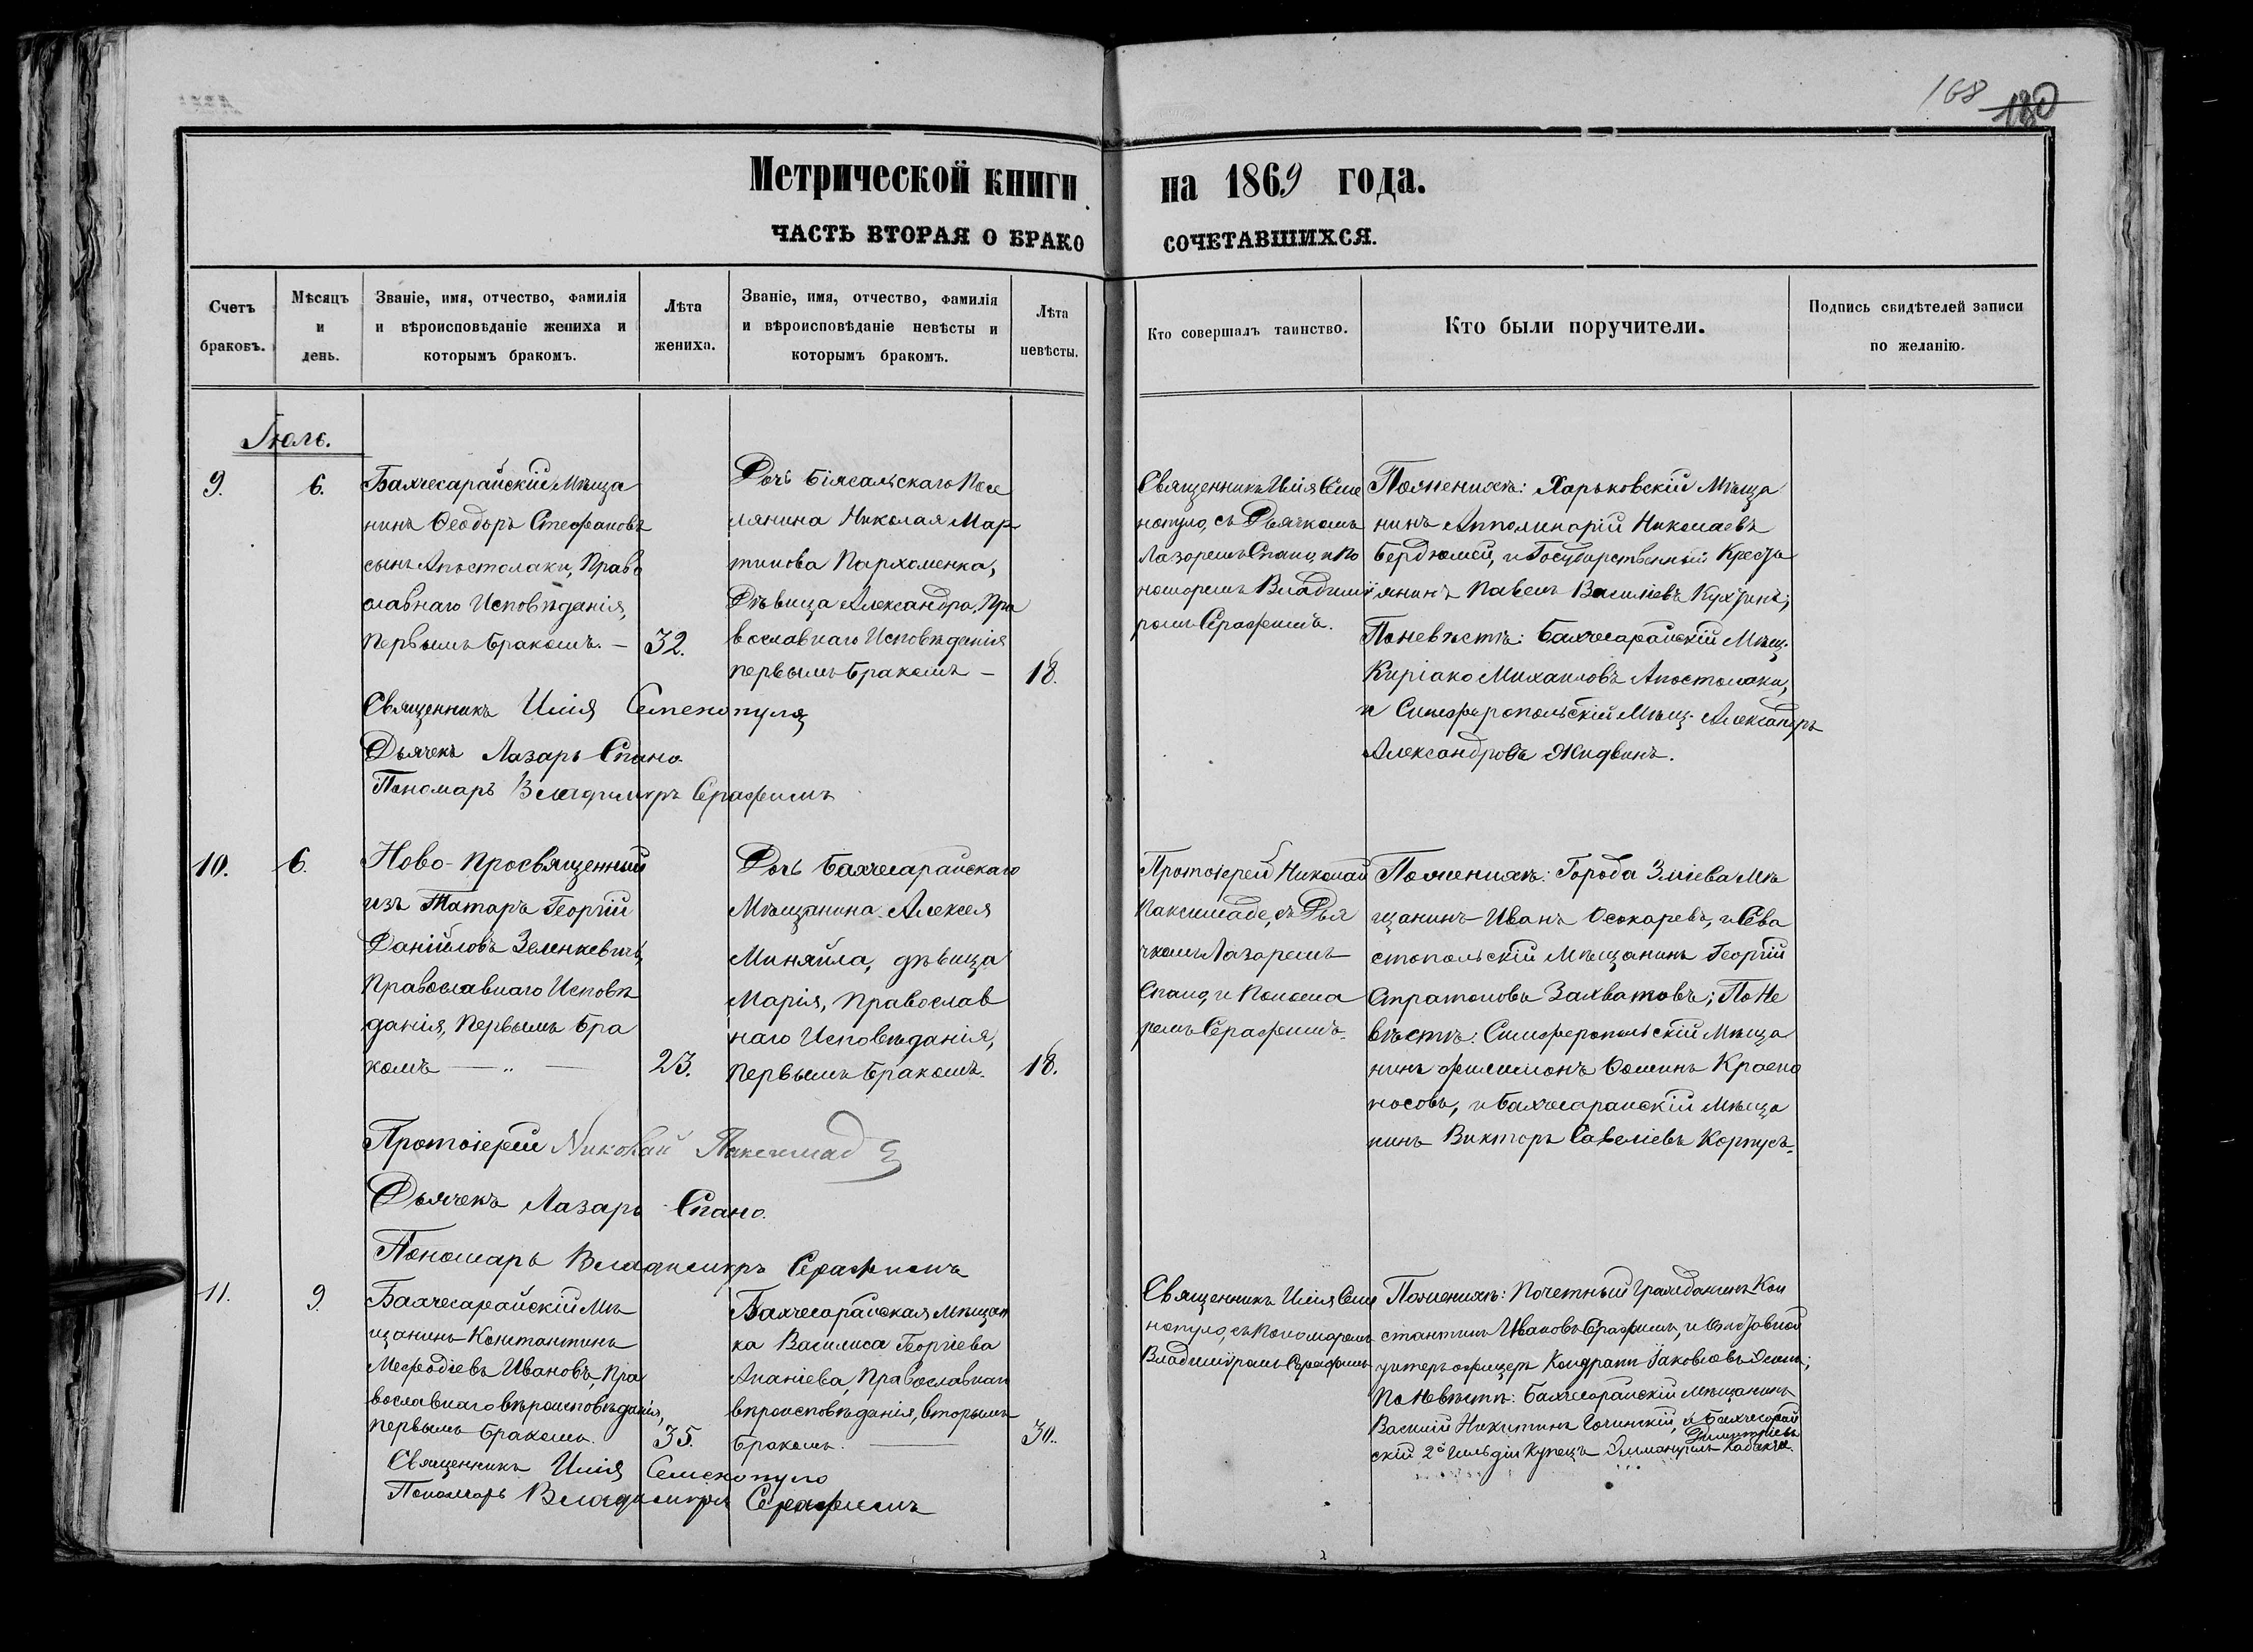 168 180
Метрической книги на 1869 года.
ЧАСТЬ ВТОРАЯ О БРАКО СОЧЕТАВШИХСЯ.
Счетъ
браковъ.
Мѣсяцъ
и
день.
Званіе, имя, отчество, фамилія
и вѣроисповѣданіе жениха и
которымъ бракомъ.
Лѣта
жениха.
Званіе, имя, отчество, фамилія
и вѣроисповѣданіе невѣсты и
которымъ бракомъ.
Лѣта
невѣсты.
Кто совершалъ таинство.
Кто были поручители.
Подпись свидѣтелей записи
по желанію.
Іюль.
9.
6.
Бахчесарайскій Мѣща
нинъ Ѳеодоръ Стефановъ
сынъ Апостолаки, Право
славнаго Исповѣданія,
первымъ бракомъ. —
32.
Дочь Біясальскаго Посе
лянина Николая Мар
тинова Пархоменка,
Дѣвица Александра, Пра
вославнаго Исповѣданія
первымъ бракомъ —
18.
Священникъ Илія Семе
нопуло, съ Дьячкомъ
Лазоремъ Спано, и По
номоремъ Владимі
ромъ Серафимъ.
По женихѣ: Харьковскій Мѣща
нинъ Апполинарій Николаевъ
и Государственный Кресть
янинъ Павелъ Василіевъ
По невѣстѣ: Бахчесарайскій Мѣщ.
Киріако Михаиловъ Апостолаки,
и Симферопольскій Мѣщ. Александръ
Александровъ Жидвинъ.
Священникъ Илія Семенопуло
Дьячекъ Лазарь Спано
Пономарь Владимиръ Серафимъ
10.
6.
Ново-Просвященный
изъ Татаръ Георгій
Даніиловъ Зеленкевичъ,
Православнаго Исповѣ
данія, Первымъ бра
комъ — „ —
23.
Дочь Бахчесарайскаго
Мѣщанина Алексея
Миняйла, дѣвица
Марія, Православ
наго Исповѣданія,
Первымъ бракомъ.
18.
Протоіерей Николай
Паксимаде, съ Дья
чкомъ Лазаремъ
Спано, и Понома
ремъ Серафимъ.
По женихѣ: Города Зміева Мѣ
щанинъ Иванъ Осокаревъ, и Сева
стопольскій Мѣщанинъ Георгій
Стратоновъ Захватовъ; По Не
вѣстѣ: Симферопольскій Мѣща
нинъ Филимонъ Ѳоминъ Красно
носовъ, и Бахчесарайскій Мѣща
нинъ Викторъ Савеліевъ Корпусъ.
Протоіерей Николай Паксимадe
Дьячекъ Лазарь Спано.
Пономарь Владимиръ Серафимъ
11.
9.
Бахчесарайскій Мѣ
щанинъ Константинъ
Мефодіевъ Ивановъ, Пра
вославнаго вѣроисповѣданія,
первымъ бракомъ.
35.
Бахчесарайская Мѣщан
ка Василиса Георгіева
Ананіева, Православнаго
вѣроисповѣданія, вторымъ
бракомъ. —
30.
Священникъ Илія Семе
нопуло, съ Пономаремъ
Владиміромъ Серафимъ
По женихѣ: Почетный Гражданинъ Кон
стантинъ Ивановъ Серафимъ, и Отставной
унтеръ офицеръ Кондратъ Іаковлевъ
По Невѣстѣ: Бахчесарайскій мѣщанинъ
Василій Никитинъ и Бахчесарай
Димитріевъ
скій 2й Гильдіи Купецъ Эммануилъ
Священникъ Илія Семенопуло
Пономарь Владимиръ Серафимъ